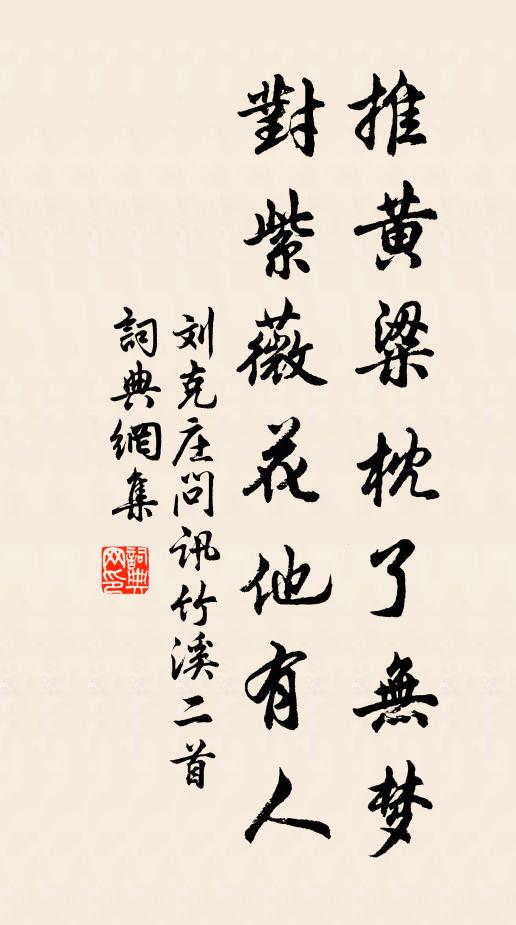 推黄梁枕了無梦
對紫薇花他有人
刘克庄問訊竹溪二首
詞典網集
詞典网印